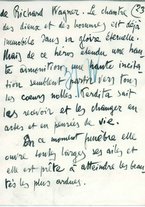 de Richard Wagner. Le chantre (23
des dieux et des hommes est déjà
immobile dans sa gloire éternelle.
Mais de ce héros étendu une haute
incita-
tion semblent partir vers tous
les cœurs nobles
les recevoir et les changer en
actes et en pensées de vie.
En ce moment funèbre elle
ouvre toutes larges ses ailes et
elle est prête à atteindre les beau-
tés les plus ardues.